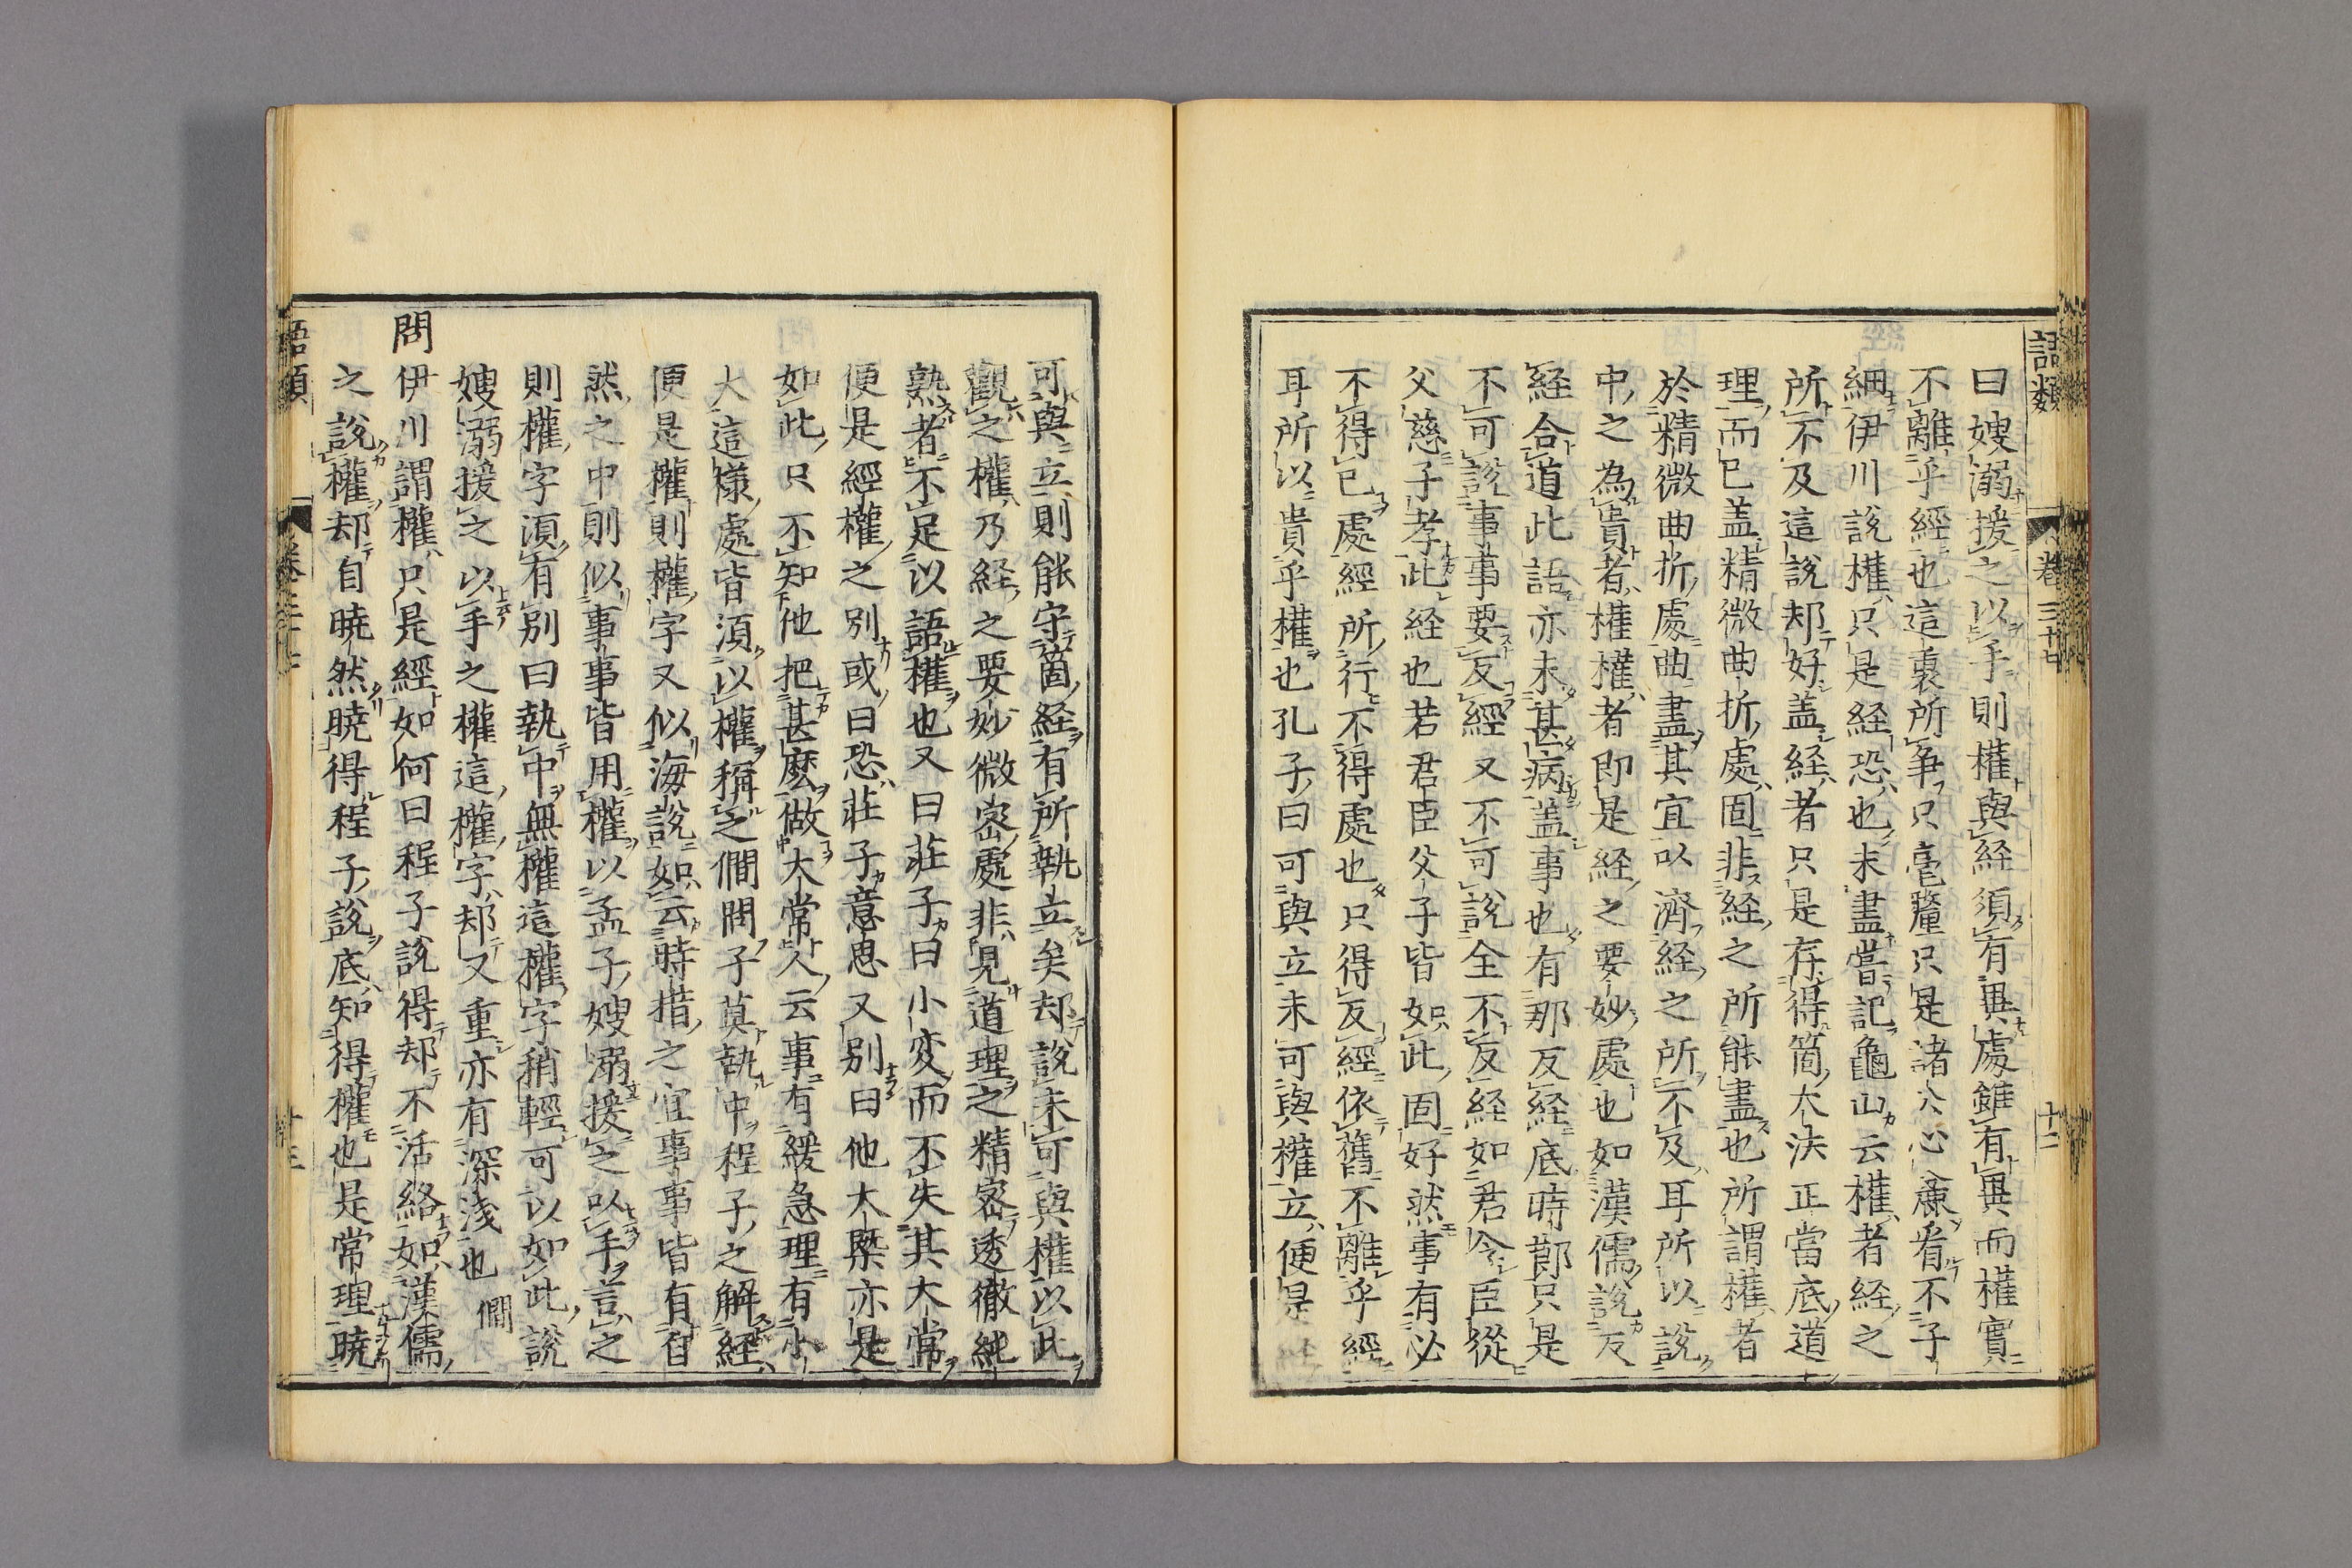 語類 卷三十七 十二
曰嫂溺援之以手則權與経須有異處雖有異而權實
不離乎經也這裏所爭只毫釐只是諸公心麄看不子
細伊川說權只是経恐也未盡嘗記龜山云權者經之
所不及這說却好盖経者只是存得箇大法正當底道
理而已盖精微曲折處固非経之所能盡也所謂權者
於精微曲折處曲盡其宜以濟経之所不及耳所以說
中之為貴者權權者即是経之要妙處也如漢儒說反
経合道此語亦未甚病盖事也有那反経底時節只是
不可說事事要反經又不可說全不反経如君令臣從
父慈子孝此経也若君臣父子皆如此固好然事有必
不得已處經所行不得處也只得反經依舊不離乎經
耳所以貴乎權也孔子曰可與立未可與權立便是
可與立則能守箇経有所執立矣却說未可與權以此
觀之權乃経之要妙微密處非見道理之精密透徹純
熟者不足以語權也又曰莊子曰小変而不失其大常
便是經權之別或曰恐莊子意思又別曰他大槩亦是
如此只不知他把甚麼做大常人云事有緩急理有小
大這樣處皆須以權稱之僩問子莫執中程子之解經
便是權則權字又似海說如云時措之宜事事皆有自
然之中則似事事皆用權以孟子嫂溺援之以手言之
則權字須有別曰執中無權這權字稍輕可以如此說
嫂溺援之以手之權這權字却又重亦有深淺也 僩
問伊川謂權只是經如何曰程子說得却不活絡如漢儒
之說權却自曉然曉得程子說底知得權也是常理曉
語類 卷三十七 十三